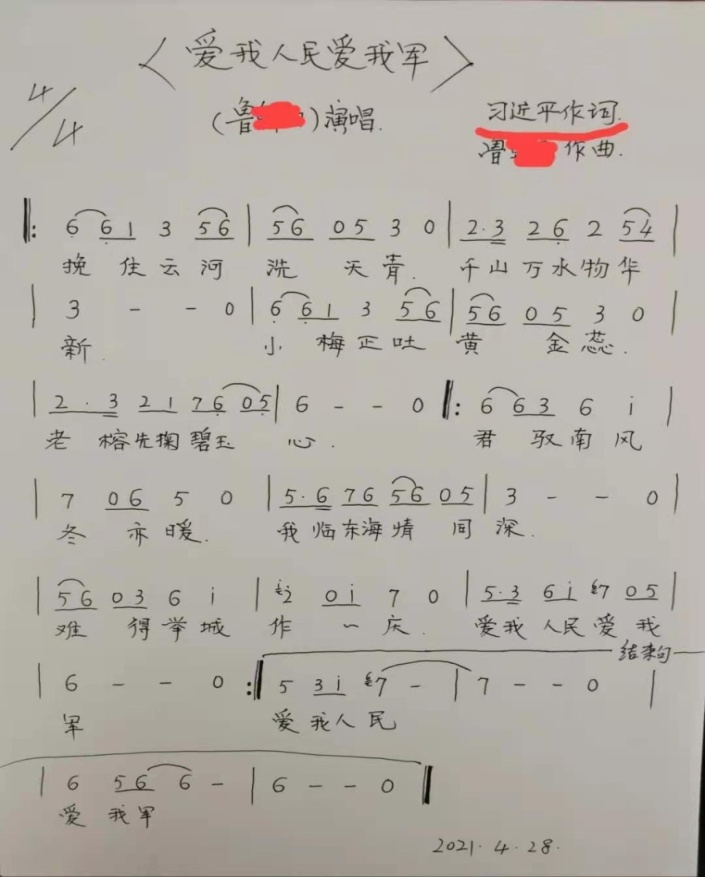 〈爱我人民爱我军〉
4/4
(鲁 )演唱.
习近平作词.
作曲.
‖: 6 6 1 3 5 6 | 5 6 0 5 3 0 | 2·3 2 6 2 5 4 |
挽住云河洗天青. 千山万水物华
| 3 - - 0 | 6 6 1 3 5 6 | 5 6 0 5 3 0 |
新. 小梅正吐黄金蕊.
| 2·3 2 1 7 6 0 5 | 6 - - 0 ‖: 6 6 3 6 i |
老榕先掬碧玉心. 君驭南风
| 7 0 6 5 0 | 5·6 7 6 5 6 0 5 | 3 - - 0 |
冬亦暖. 我临东海情同深.
| 5 6 0 3 6 i | 2 0 i 7 0 | 5·3 6 i 7 0 5 |
难得举城作一庆. 爱我人民爱我
结束句
| 6 - - 0 :‖ 5 3 i 7 - | 7 - - 0 |
军 爱我人民
| 6 5 6 6 - | 6 - - 0 ‖
爱我军
2021.4.28.